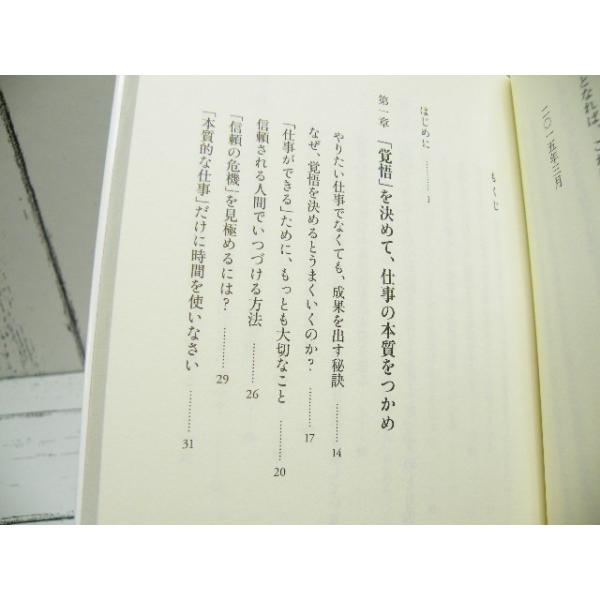 となれば、
二〇一五年三月
もくじ
はじめに ………… 1
第一章 「覚悟」を決めて、仕事の本質をつかめ
やりたい仕事でなくても、成果を出す秘訣 ………… 14
なぜ、覚悟を決めるとうまくいくのか? ………… 17
「仕事ができる」ために、もっとも大切なこと ………… 20
信頼される人間でいつづける方法 ………… 26
「信頼の危機」を見極めるには? ………… 29
「本質的な仕事」だけに時間を使いなさい ………… 31